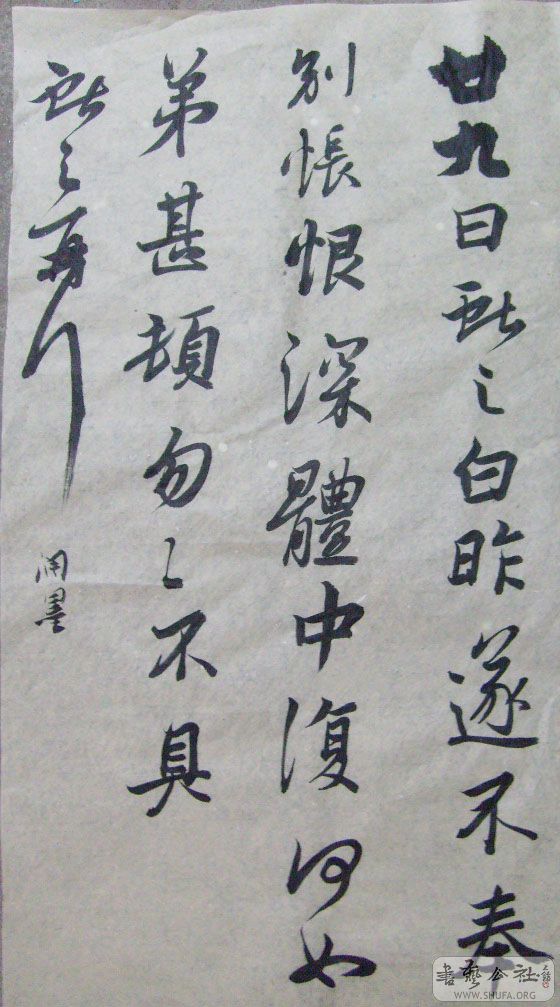 廿九日獻之白昨遂不奉
別悵恨深體中復何如
弟甚頓匆匆不具
獻之再行
润墨
書藝公社
WWW.SHUFA.ORG